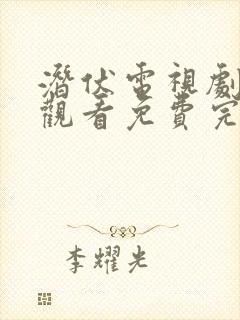 潛伏電視劇
觀看免費完
李耀光